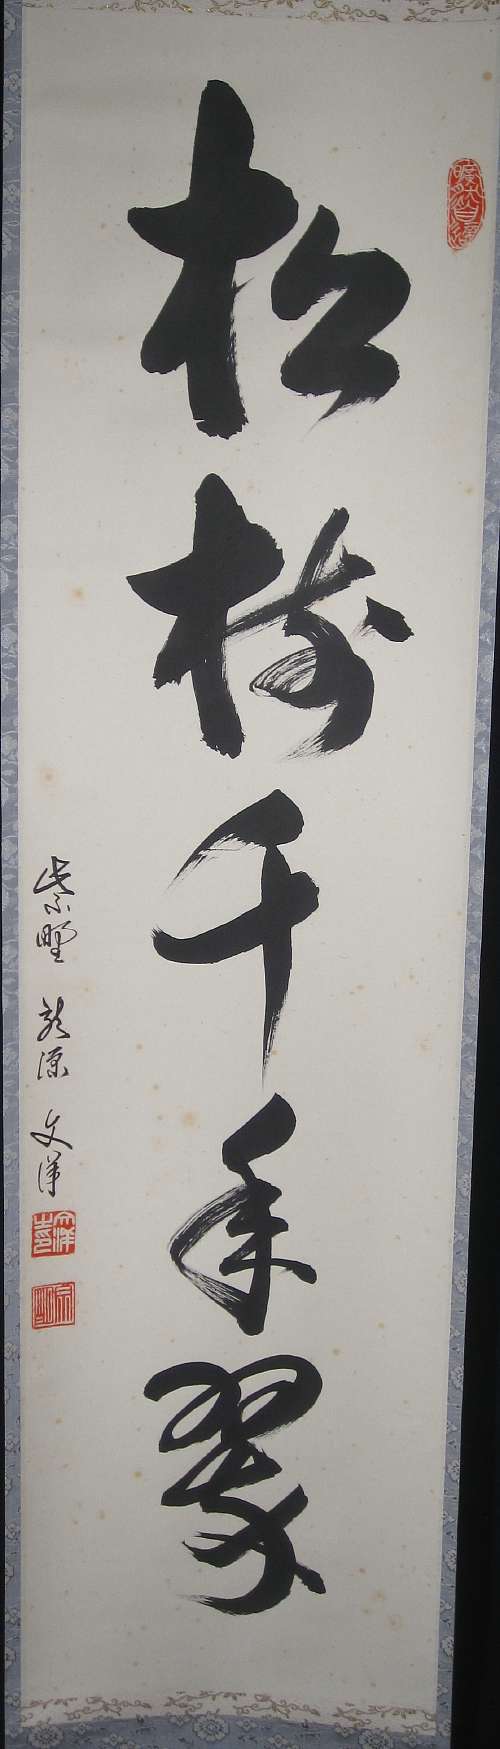 松樹千年翠
紫野 龍源 文洋